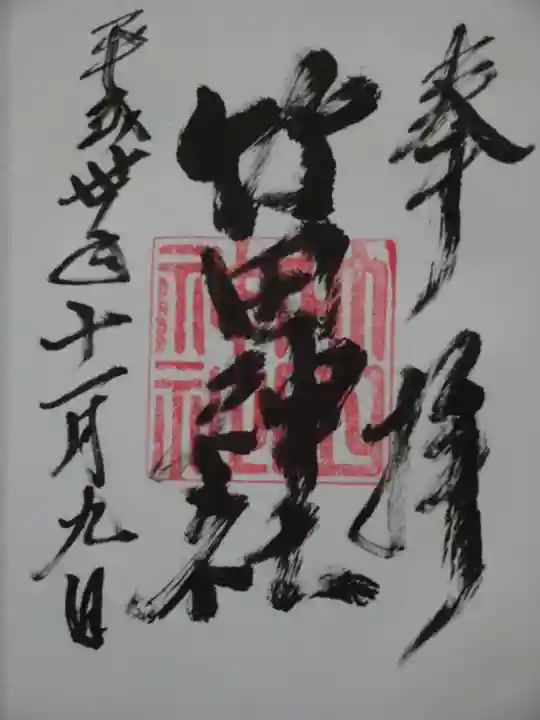 奉拝
竹田神社
平成丗年十一月九日